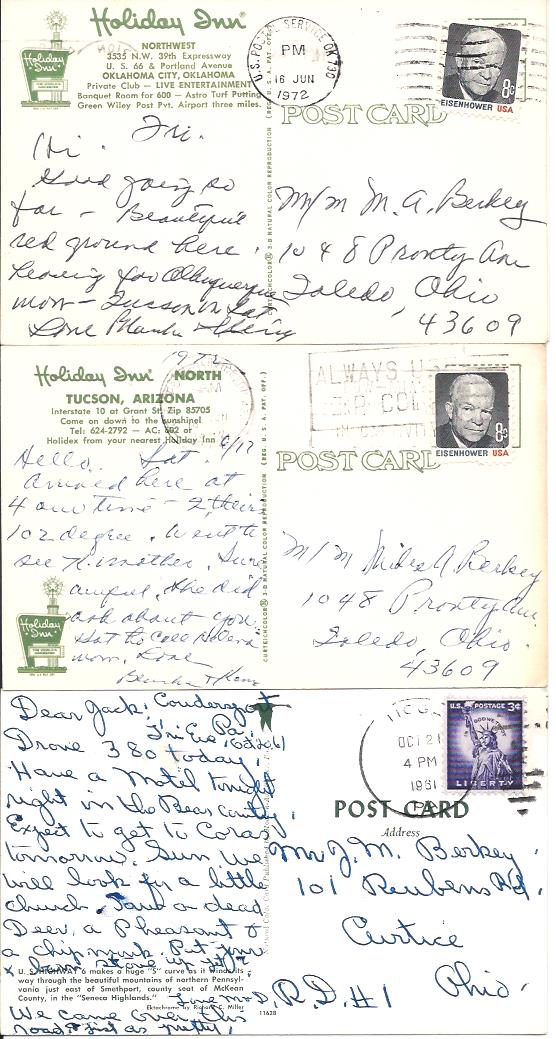 Holiday Inn
NORTHWEST
3535 N.W. 39th Expressway
U. S. 66 & Portland Avenue
OKLAHOMA CITY, OKLAHOMA
Private Club — LIVE ENTERTAINMENT
Banquet Room for 600 — Astro Turf Putting
Green Wiley Post Pvt. Airport three miles.
Holiday Inn
U.S. POSTAL SERVICE OK 730
PM
16 JUN
1972
8c
EISENHOWER USA
POST CARD
CURTEICHCOLOR 3-D NATURAL COLOR REPRODUCTION (REG. U. S. A. PAT. OFF.)
Fri.
Hi.
Good going so
far — Beautiful
red ground here.
Leaving for Albuquerque
mom — Tucson on Sat
Love Blanche &
M/m M. A. Berkey
1048 Pronty Ave
Toledo, Ohio
43609
1972
Holiday Inn NORTH
TUCSON, ARIZONA
Interstate 10 at Grant St. Zip 85705
Come on down to the sunshine!
Tel: 624-2792 — AC: 602 or
Holidex from your nearest Holiday Inn
Holiday Inn
ALWAYS U
ZIP CO
8c
EISENHOWER USA
POST CARD
CURTEICHCOLOR 3-D NATURAL COLOR REPRODUCTION (REG. U. S. A. PAT. OFF.)
Hello. Sat. 6/17
arrived here at
4 our time — 2 theirs
102 degree. Went to
see mother. Sun
awful. She did
ask about you.
Got to call
mom. Love
M/M A. Berkey
1048 Pronty Ave.
Toledo, Ohio.
43609
Dear Jack, Coudersport
Fri Eve Pa.
Drove 380 today.
Have a Motel tonight
right in the Bear country.
Expect to get to Coras
tomorrow. Sun. we
will look for a little
church. Saw a dead
Deer, a Pheasant &
a chipmunk. Put your
stove up yet?
U. S. HIGHWAY 6 makes a huge "S" curve as it winds its
way through the beautiful mountains of northern Pennsyl-
vania just east of Smethport, county seat of McKean
County, in the "Seneca Highlands."
Ektachrome by Richard C. Miller
Love M & D.
We came over this
road. Just as pretty.
11628
OCT 21
4 PM
1961
U.S. POSTAGE 3¢
IN GOD WE TRUST
LIBERTY
POST CARD
Address
Mr J. M. Berkey.
101 Reubens Rd.
Curtice
Ohio.
R. D. #1